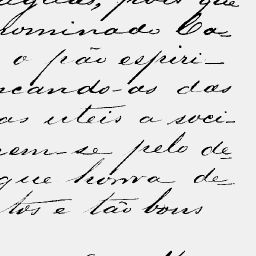 pois que
nominado Co-
o pão espiri-
ncando-os das
as uteis a soci-
em-se pelo de-
que honra de-
tos e tão bons